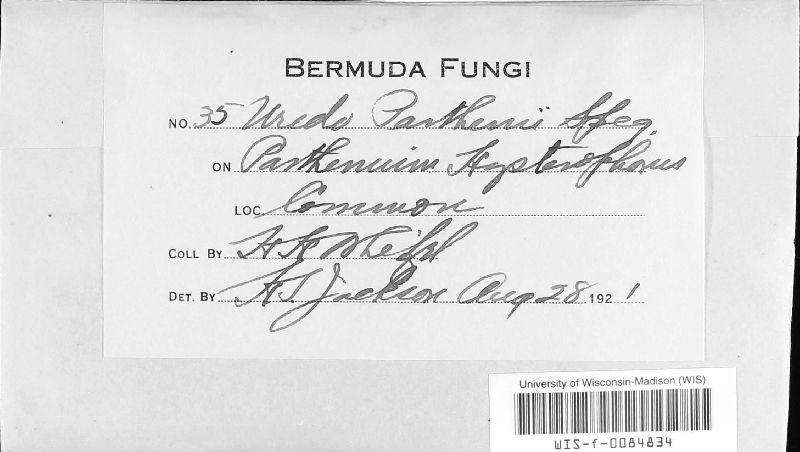 BERMUDA FUNGI
NO. 35 Uredo Parthenii Speg.
ON Parthenium Hysterophorus
LOC. Common
COLL BY H H Whetzel
DET. BY H S Jackson Aug 28 1921
University of Wisconsin-Madison (WIS)
WIS-f-0084834